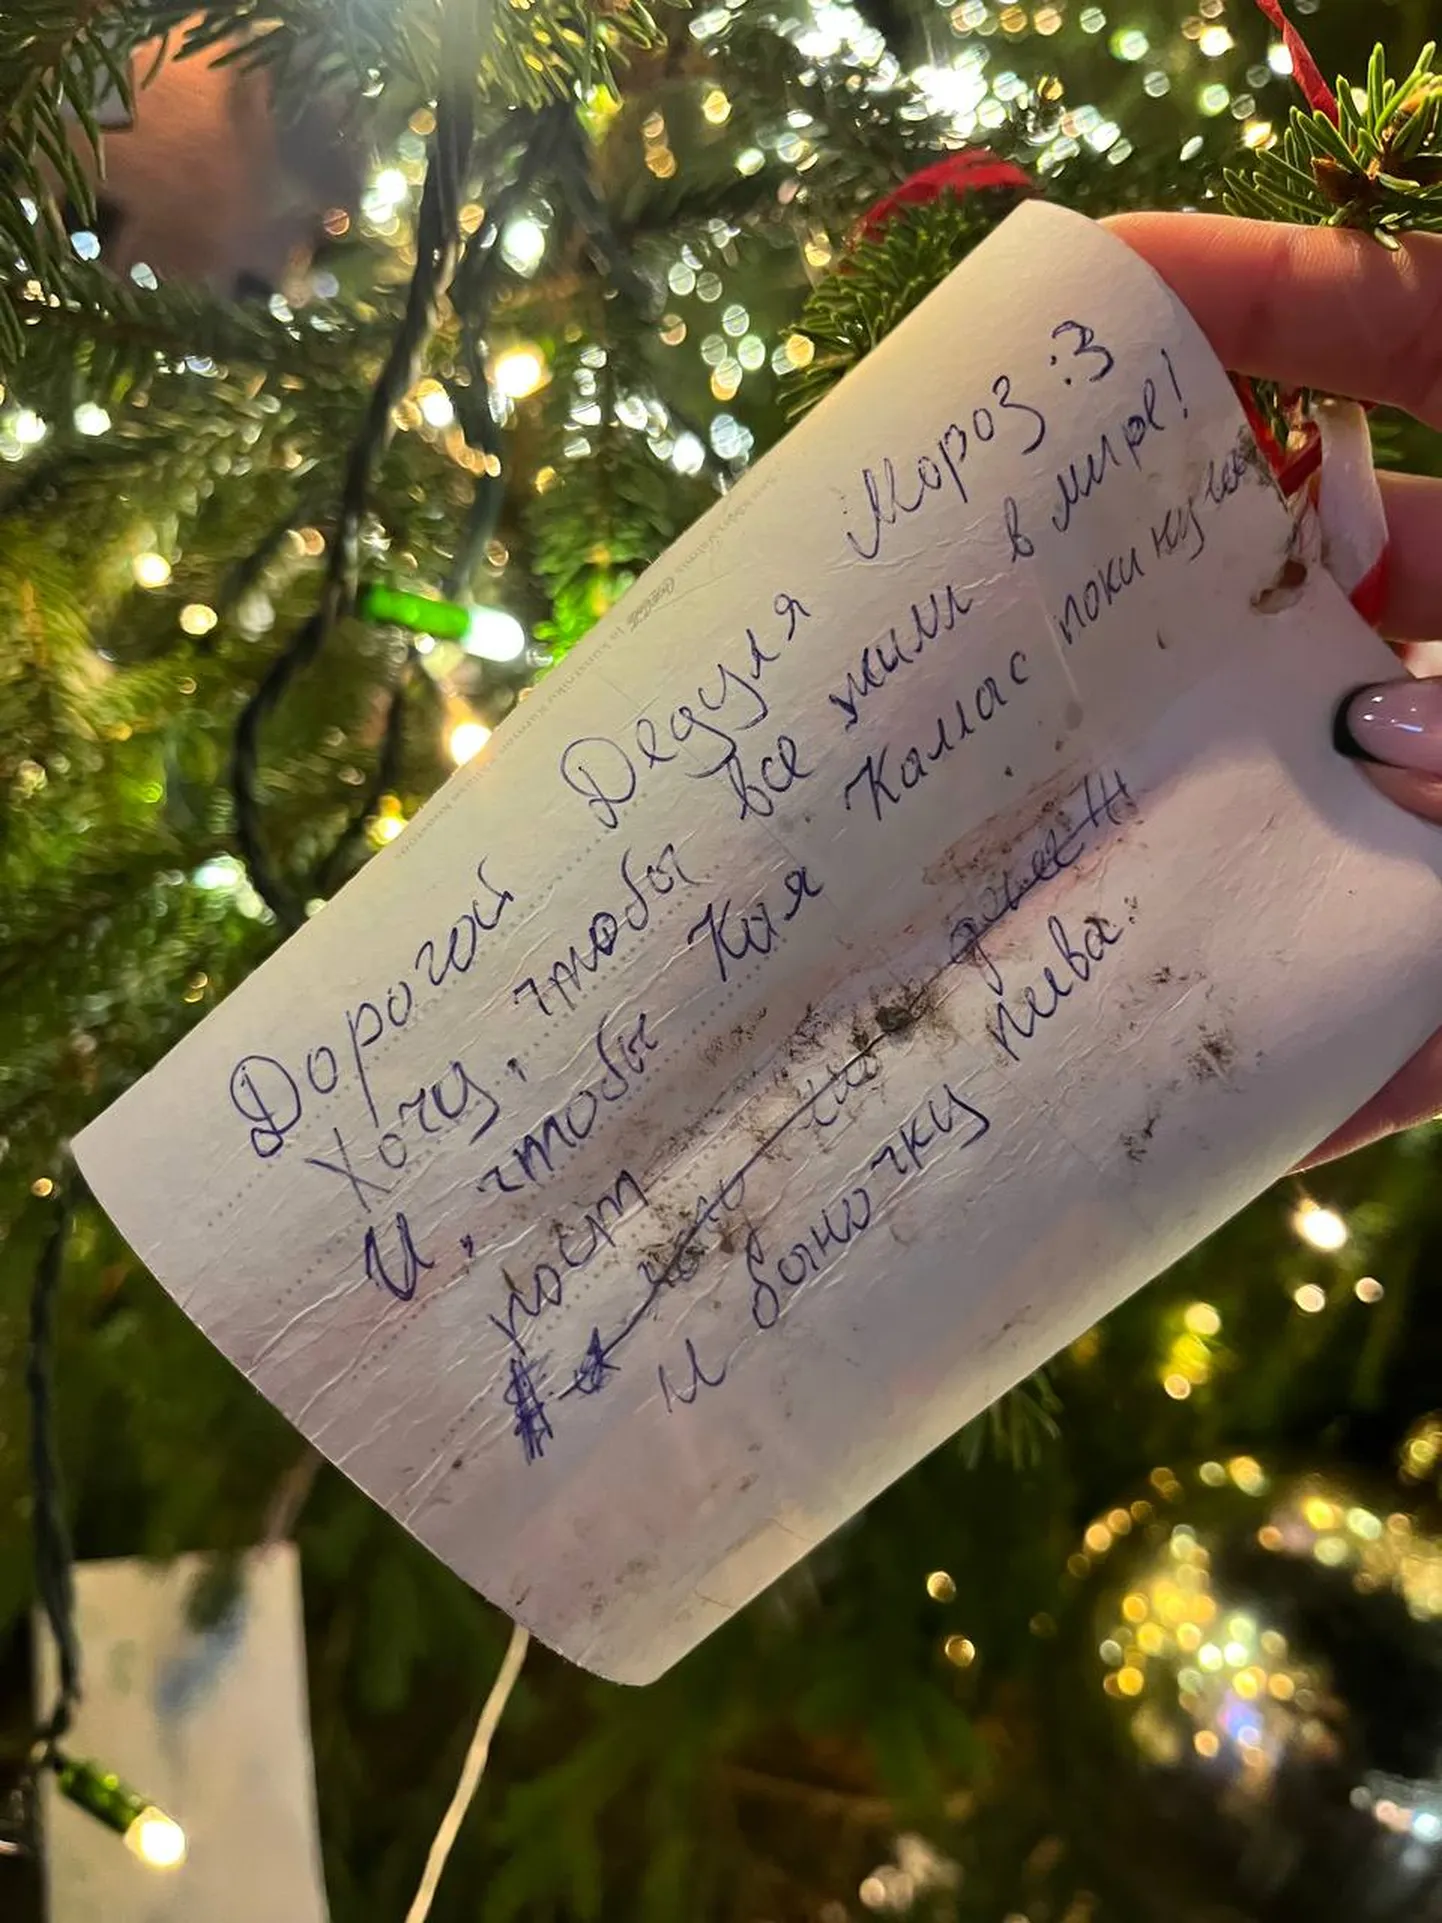 Дорогой Дедуля Мороз :3
Хочу, чтобы все жили в мире!
И, чтобы Кая Каллас покинула
пост
И баночку пива.